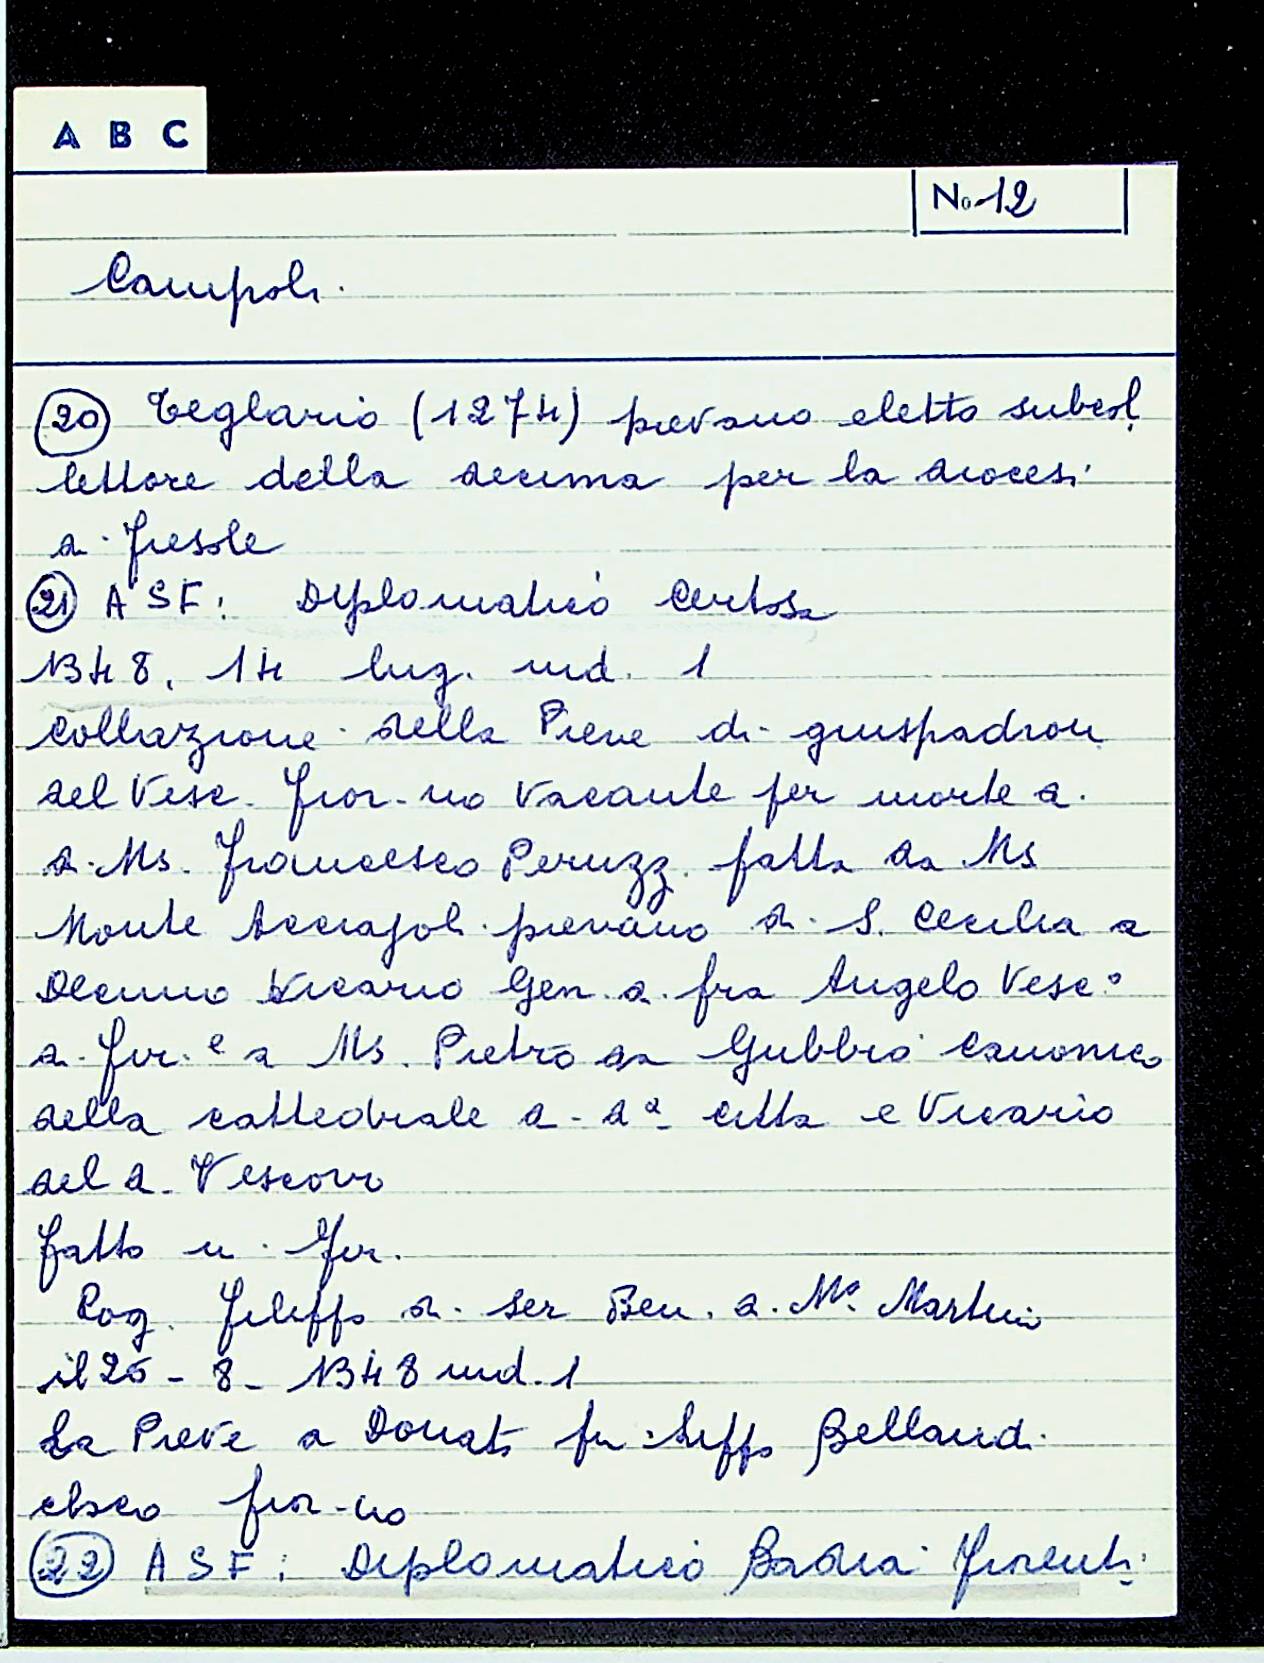 A B C
No 12
Campoli.
(20) Teglario (1274) pievano eletto subcol
lettore della decima per la diocesi
di Fiesole
(21) ASF: Diplomatico Certosa
1348, 14 lug. ind. 1
Collazione della Pieve di giuspadron
del Vesc. fior-no vacante per morte d.
di Ms. Francesco Peruzzi fatta da Ms
Monte Acciajoli pievano di S. Cecilia a
Decimo Vicario Gen. di fra Angelo Vesc°
di Fir. e a Ms. Pietro da Gubbio canonico
della cattedrale di da città e Vicario
del d. Vescovo
fatto in Fir.
Rog. Filippo di ser Ben. di M° Martini
il 26 - 8 - 1348 ind. 1
La Pieve a Donato fu Lippo Bellandi
chco fior-no
(22) ASF: Diplomatico Badia Fiorenti